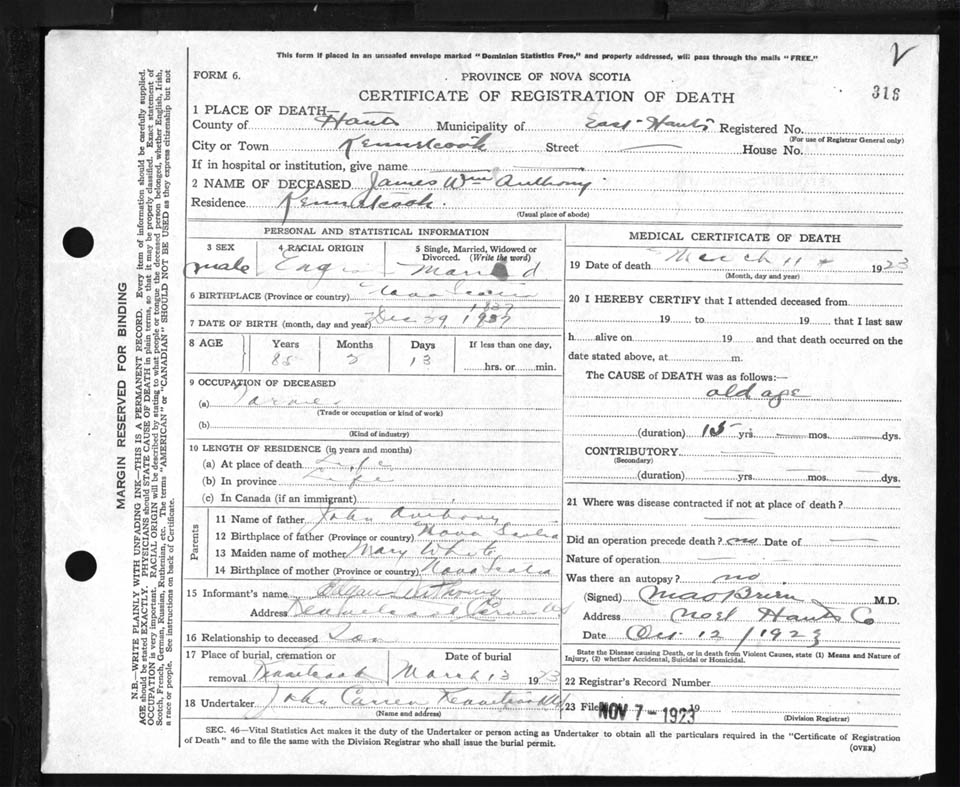 This form if placed in an unsealed envelope marked "Dominion Statistics Free," and properly addressed, will pass through the mails "FREE."
2
FORM 6.
PROVINCE OF NOVA SCOTIA
CERTIFICATE OF REGISTRATION OF DEATH
316
1 PLACE OF DEATH—
County of Hants Municipality of East Hants Registered No.
(For use of Registrar General only)
City or Town Kennetcook Street — House No.
If in hospital or institution, give name
2 NAME OF DECEASED James Wm Anthony
Residence Kennetcook
(Usual place of abode)
PERSONAL AND STATISTICAL INFORMATION
3 SEX 4 RACIAL ORIGIN 5 Single, Married, Widowed or Divorced. (Write the word)
male Married
6 BIRTHPLACE (Province or country) Nova Scotia
1837
7 DATE OF BIRTH (month, day and year) Dec 29 1937
8 AGE Years Months Days If less than one day,
85 13 hrs. or min.
9 OCCUPATION OF DECEASED
(a) Farmer
(Trade or occupation or kind of work)
(b)
(Kind of industry)
10 LENGTH OF RESIDENCE (in years and months)
(a) At place of death Life
(b) In province Life
(c) In Canada (if an immigrant)
Parents
11 Name of father John Anthony
12 Birthplace of father (Province or country) Nova Scotia
13 Maiden name of mother Mary White
14 Birthplace of mother (Province or country) Nova Scotia
15 Informant's name Anthony
Address
16 Relationship to deceased Son
17 Place of burial, cremation or removal Kennetcook Date of burial March 13 1923
18 Undertaker John Kennetcook
(Name and address)
MEDICAL CERTIFICATE OF DEATH
19 Date of death March 11 1923
(Month, day and year)
20 I HEREBY CERTIFY that I attended deceased from
19 to 19 that I last saw
h alive on 19 and that death occurred on the
date stated above, at m.
The CAUSE of DEATH was as follows:—
old age
(duration) 15 yrs. mos. dys.
CONTRIBUTORY
(Secondary)
(duration) yrs. mos. dys.
21 Where was disease contracted if not at place of death?
Did an operation precede death? no Date of —
Nature of operation —
Was there an autopsy? no
(Signed) M.D.
Address Noel Hants Co
Date Oct 12/1923
State the Disease causing Death, or in death from Violent Causes, state (1) Means and Nature of
Injury, (2) whether Accidental, Suicidal or Homicidal.
22 Registrar's Record Number
23 Filed NOV 7 - 1923 19
(Division Registrar)
SEC. 46—Vital Statistics Act makes it the duty of the Undertaker or person acting as Undertaker to obtain all the particulars required in the "Certificate of Registration
of Death" and to file the same with the Division Registrar who shall issue the burial permit.
(OVER)
MARGIN RESERVED FOR BINDING
N.B.—WRITE PLAINLY WITH UNFADING INK—THIS IS A PERMANENT RECORD. Every item of information should be carefully supplied.
AGE should be stated EXACTLY. PHYSICIANS should STATE CAUSE OF DEATH in plain terms, so that it may be properly classified. Exact statement of
OCCUPATION is very important. RACIAL ORIGIN will be described by stating to what people or tongue the deceased person belonged, whether English, Irish,
Scotch, French, German, Russian, Ruthenian, etc. The terms "AMERICAN" or "CANADIAN" SHOULD NOT BE USED as they express citizenship but not
a race or people. See instructions on back of Certificate.